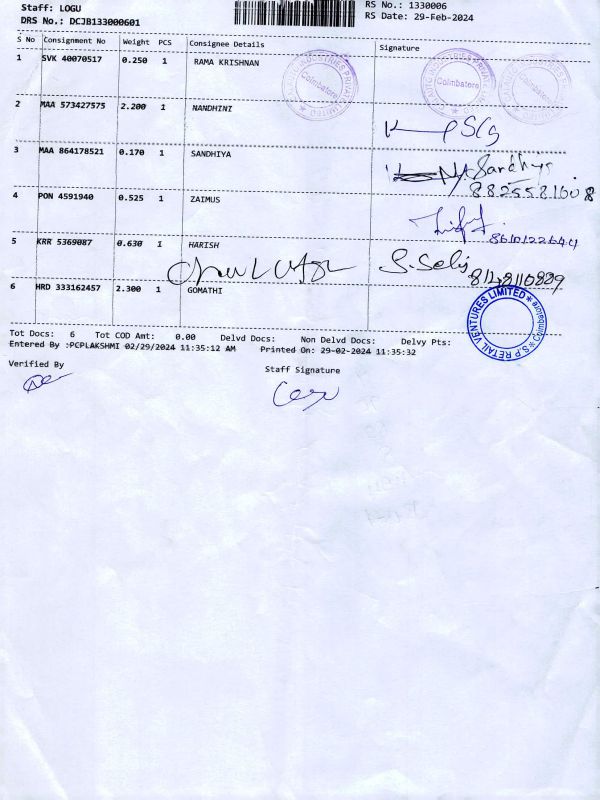 Staff: LOGU
DRS No.: DCJB133000601
RS No.: 1330006
RS Date: 29-Feb-2024
S No Consignment No Weight PCS Consignee Details Signature
1 SVK 40070517 0.250 1 RAMA KRISHNAN
Coimbatore
Coimbatore
Coimbatore
2 MAA 573427575 2.200 1 NANDHINI
3 MAA 864178521 0.170 1 SANDHIYA
Sandhiya
8825581608
4 PON 4591940 0.525 1 ZAIMUS
8610122644
5 KRR 5369087 0.630 1 HARISH
8148110889
6 HRD 333162457 2.300 1 GOMATHI
S P RETAIL VENTURES LIMITED
Coimbatore
Tot Docs: 6 Tot COD Amt: 0.00 Delvd Docs: Non Delvd Docs: Delvy Pts:
Entered By :PCPLAKSHMI 02/29/2024 11:35:12 AM Printed On: 29-02-2024 11:35:32
Verified By
Staff Signature